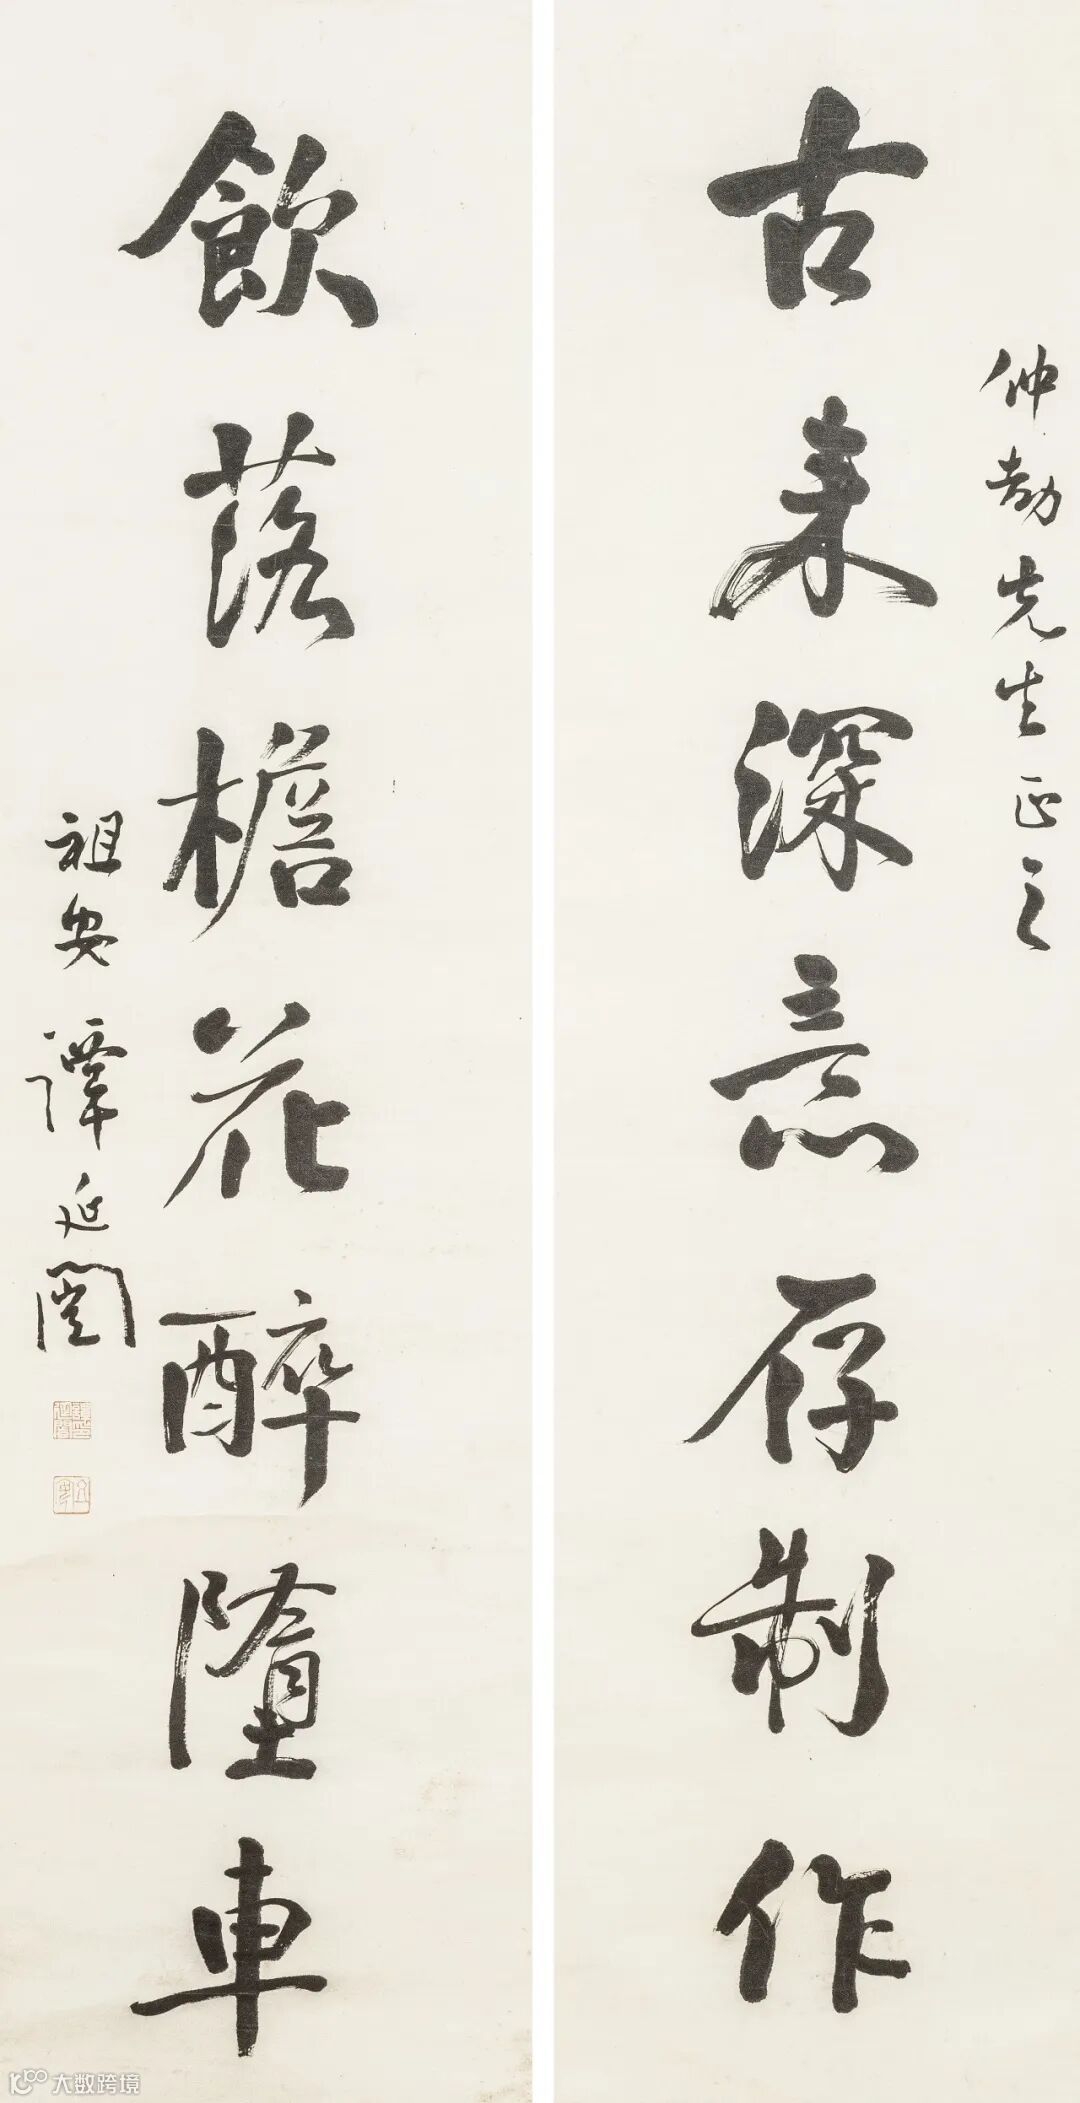 仲劼先生正之
古来深意存制作
飲落檐花醉墮車
祖安譚延闓
大数跨境